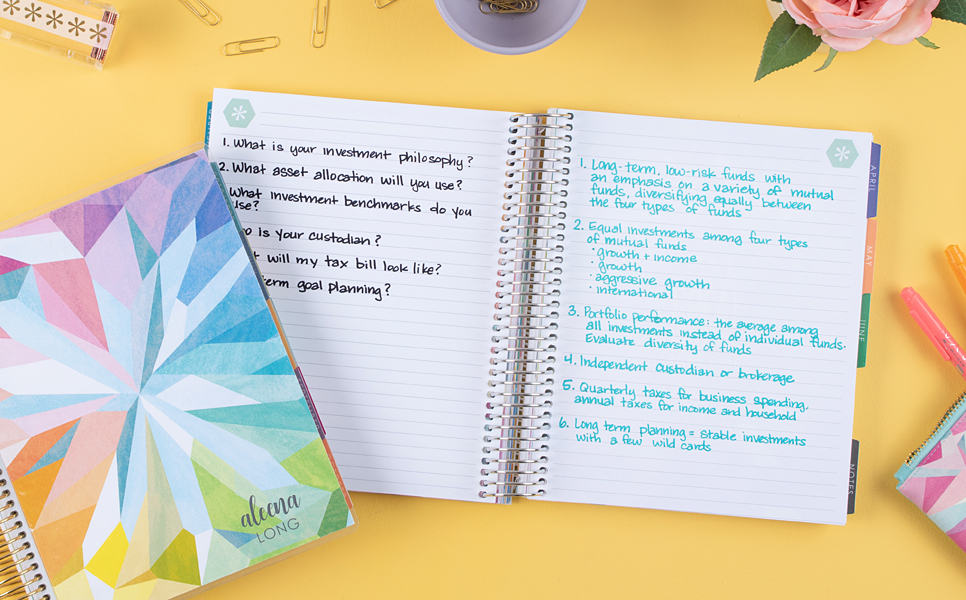 1. What is your investment philosophy?
2. What asset allocation will you use?
What investment benchmarks do you
use?
o is your custodian?
t will my tax bill look like?
term goal planning?
aleena
LONG
1. Long-term, low-risk funds with
an emphasis on a variety of mutual
funds, diversifying equally between
the four types of funds
2. Equal investments among four types
of mutual funds
· growth + income
· growth
· aggressive growth
· international
3. Portfolio performance: the average among
all investments instead of individual funds.
Evaluate diversity of funds
4. Independent custodian or brokerage
5. Quarterly taxes for business spending,
annual taxes for income and household
6. Long term planning = stable investments
with a few wild cards
APRIL
MAY
JUNE
NOTES